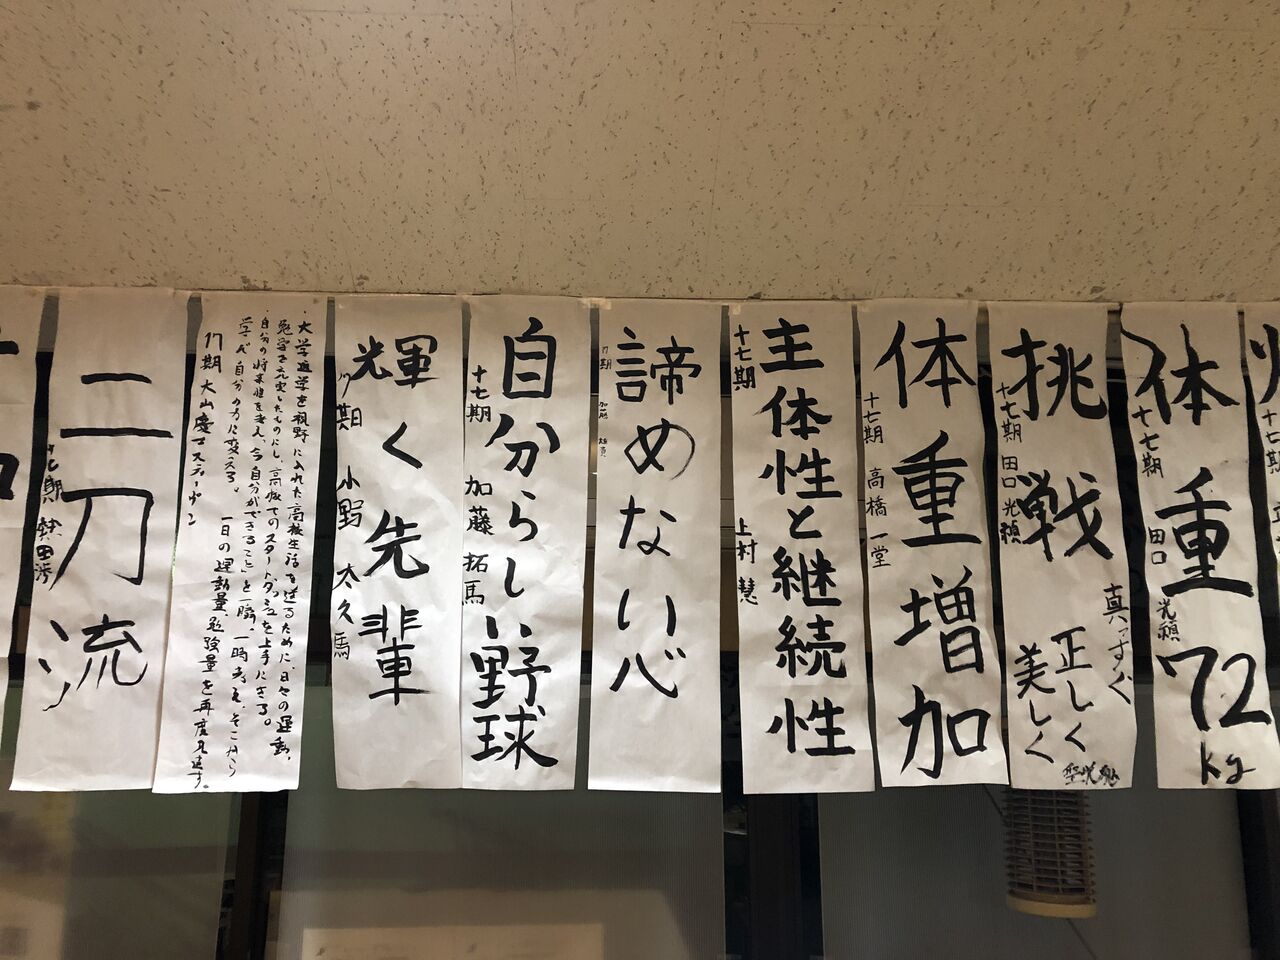 体重
72
kg
十七期
田口
光穎
挑戦
十七期
田口
光穎
真っすぐ
正しく
美しく
体重増加
十七期
高橋
一堂
主体性と継続性
十七期
上村
慧
諦めない心
17期
自分らしい野球
十七期
加藤
拓馬
輝く先輩
17期
小野
太久馬
・大学進学を視野に入れた高校生活を送るために、日々の運動、
勉学を充実したものにし、高校でのスタートダッシュを上手にきる。
・自分の将来性を考え、今自分ができることを一瞬、一時考え、そこから
学び、自分の力に変える。
一日の運動量、勉強量を再度見直す。
17期
二刀流
十七期